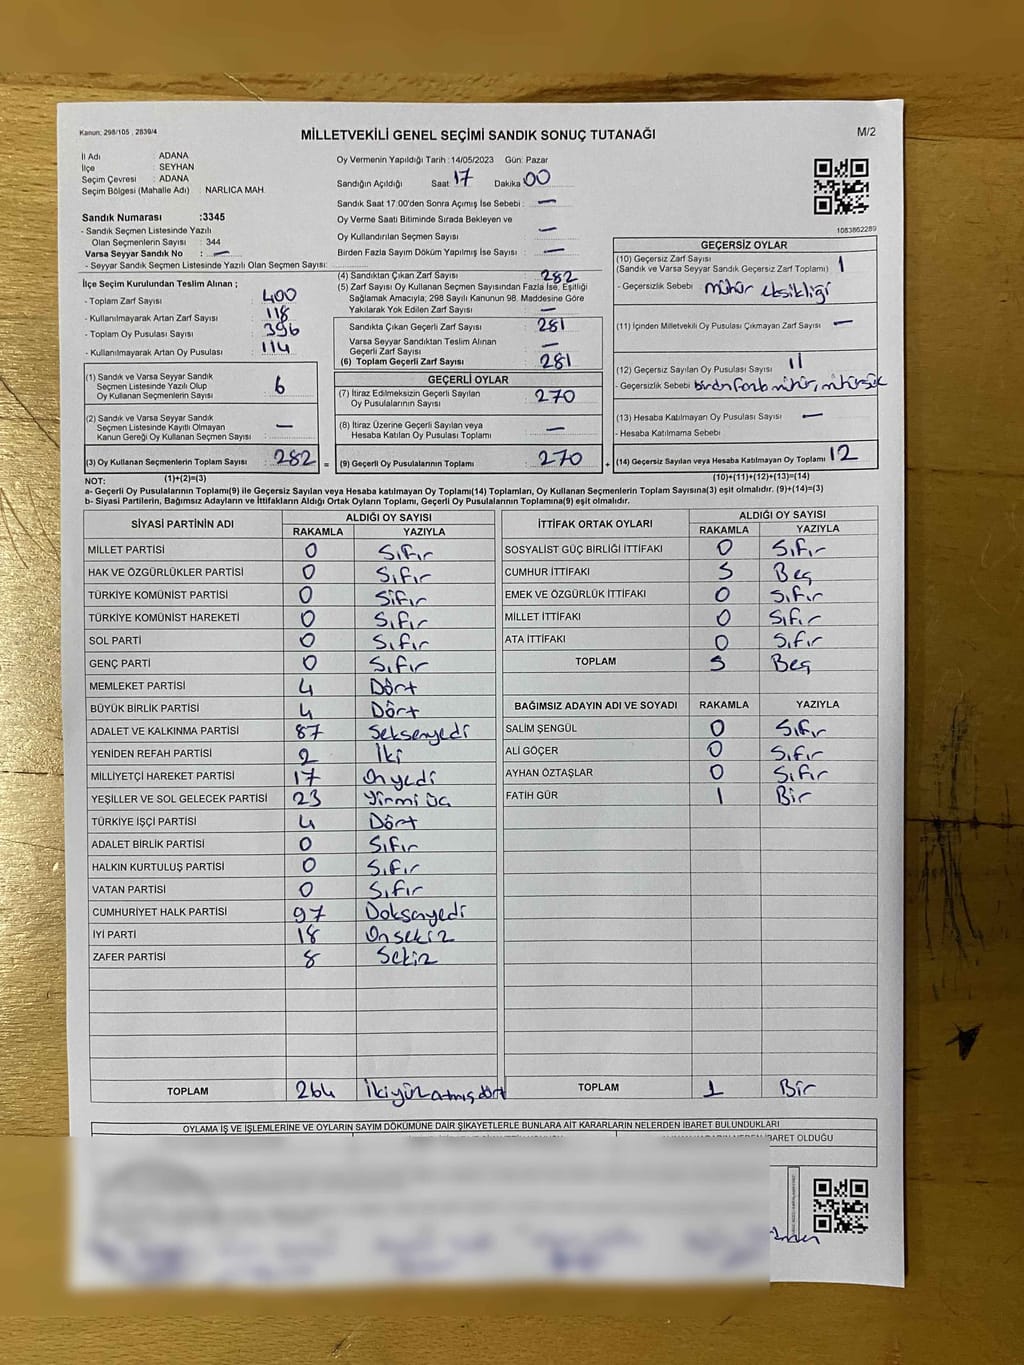 Kanun, 298/105 , 2839/4
MİLLETVEKİLİ GENEL SEÇİMİ SANDIK SONUÇ TUTANAĞI
M/2
İl Adı : ADANA
İlçe : SEYHAN
Seçim Çevresi : ADANA
Seçim Bölgesi (Mahalle Adı) : NARLICA MAH.
Sandık Numarası :3345
- Sandık Seçmen Listesinde Yazılı
Olan Seçmenlerin Sayısı : 344
Varsa Seyyar Sandık No : —
- Seyyar Sandık Seçmen Listesinde Yazılı Olan Seçmen Sayısı:
İlçe Seçim Kurulundan Teslim Alınan ;
- Toplam Zarf Sayısı : 400
- Kullanılmayarak Artan Zarf Sayısı : 118
- Toplam Oy Pusulası Sayısı : 396
- Kullanılmayarak Artan Oy Pusulası : 114
(1) Sandık ve Varsa Seyyar Sandık
Seçmen Listesinde Yazılı Olup
Oy Kullanan Seçmenlerin Sayısı : 6
(2) Sandık ve Varsa Seyyar Sandık
Seçmen Listesinde Kayıtlı Olmayan
Kanun Gereği Oy Kullanan Seçmen Sayısı : —
(3) Oy Kullanan Seçmenlerin Toplam Sayısı : 282 =
Oy Vermenin Yapıldığı Tarih : 14/05/2023 Gün: Pazar
Sandığın Açıldığı Saat 17 Dakika 00
Sandık Saat 17.00'den Sonra Açımış İse Sebebi : —
Oy Verme Saati Bitiminde Sırada Bekleyen ve
Oy Kullandırılan Seçmen Sayısı —
Birden Fazla Sayım Döküm Yapılmış İse Sayısı : —
(4) Sandıktan Çıkan Zarf Sayısı : 282
(5) Zarf Sayısı Oy Kullanan Seçmen Sayısından Fazla İse, Eşitliği
Sağlamak Amacıyla; 298 Sayılı Kanunun 98. Maddesine Göre
Yakılarak Yok Edilen Zarf Sayısı : —
Sandıkta Çıkan Geçerli Zarf Sayısı : 281
Varsa Seyyar Sandıktan Teslim Alınan
Geçerli Zarf Sayısı : —
(6) Toplam Geçerli Zarf Sayısı : 281
GEÇERLİ OYLAR
(7) İtiraz Edilmeksizin Geçerli Sayılan
Oy Pusulalarının Sayısı : 270
(8) İtiraz Üzerine Geçerli Sayılan veya
Hesaba Katılan Oy Pusulası Toplamı : —
(9) Geçerli Oy Pusulalarının Toplamı : 270 +
1083862289
GEÇERSİZ OYLAR
(10) Geçersiz Zarf Sayısı
(Sandık ve Varsa Seyyar Sandık Geçersiz Zarf Toplamı) : 1
- Geçersizlik Sebebi : mühür eksikliği
(11) İçinden Milletvekili Oy Pusulası Çıkmayan Zarf Sayısı : —
(12) Geçersiz Sayılan Oy Pusulası Sayısı : 11
- Geçersizlik Sebebi : birden fazla mühür, mühürsüz
(13) Hesaba Katılmayan Oy Pusulası Sayısı : —
- Hesaba Katılmama Sebebi :
(14) Geçersiz Sayılan veya Hesaba Katılmayan Oy Toplamı : 12
NOT: (1)+(2)=(3)
(10)+(11)+(12)+(13)=(14)
a- Geçerli Oy Pusulalarının Toplamı(9) ile Geçersiz Sayılan veya Hesaba katılmayan Oy Toplamı(14) Toplamları, Oy Kullanan Seçmenlerin Toplam Sayısına(3) eşit olmalıdır. (9)+(14)=(3)
b- Siyasi Partilerin, Bağımsız Adayların ve İttifakların Aldığı Ortak Oyların Toplamı, Geçerli Oy Pusulalarının Toplamına(9) eşit olmalıdır.
SİYASİ PARTİNİN ADI ALDIĞI OY SAYISI
RAKAMLA YAZIYLA
MİLLET PARTİSİ 0 Sıfır
HAK VE ÖZGÜRLÜKLER PARTİSİ 0 Sıfır
TÜRKİYE KOMÜNİST PARTİSİ 0 Sıfır
TÜRKİYE KOMÜNİST HAREKETİ 0 Sıfır
SOL PARTİ 0 Sıfır
GENÇ PARTİ 0 Sıfır
MEMLEKET PARTİSİ 4 Dört
BÜYÜK BİRLİK PARTİSİ 4 Dört
ADALET VE KALKINMA PARTİSİ 87 Seksenyedi
YENİDEN REFAH PARTİSİ 2 İki
MİLLİYETÇİ HAREKET PARTİSİ 17 Onyedi
YEŞİLLER VE SOL GELECEK PARTİSİ 23 Yirmi üç
TÜRKİYE İŞÇİ PARTİSİ 4 Dört
ADALET BİRLİK PARTİSİ 0 Sıfır
HALKIN KURTULUŞ PARTİSİ 0 Sıfır
VATAN PARTİSİ 0 Sıfır
CUMHURİYET HALK PARTİSİ 97 Doksanyedi
İYİ PARTİ 18 Onsekiz
ZAFER PARTİSİ 8 Sekiz
TOPLAM 264 İkiyüzatmışdört
İTTİFAK ORTAK OYLARI ALDIĞI OY SAYISI
RAKAMLA YAZIYLA
SOSYALİST GÜÇ BİRLİĞİ İTTİFAKI 0 Sıfır
CUMHUR İTTİFAKI 5 Beş
EMEK VE ÖZGÜRLÜK İTTİFAKI 0 Sıfır
MİLLET İTTİFAKI 0 Sıfır
ATA İTTİFAKI 0 Sıfır
TOPLAM 5 Beş
BAĞIMSIZ ADAYIN ADI VE SOYADI RAKAMLA YAZIYLA
SALİM ŞENGÜL 0 Sıfır
ALİ GÖÇER 0 Sıfır
AYHAN ÖZTAŞLAR 0 Sıfır
FATİH GÜR 1 Bir
TOPLAM 1 Bir
OYLAMA İŞ VE İŞLEMLERİNE VE OYLARIN SAYIM DÖKÜMÜNE DAİR ŞİKAYETLERLE BUNLARA AİT KARARLARIN NELERDEN İBARET BULUNDUKLARI
İBARET OLDUĞU